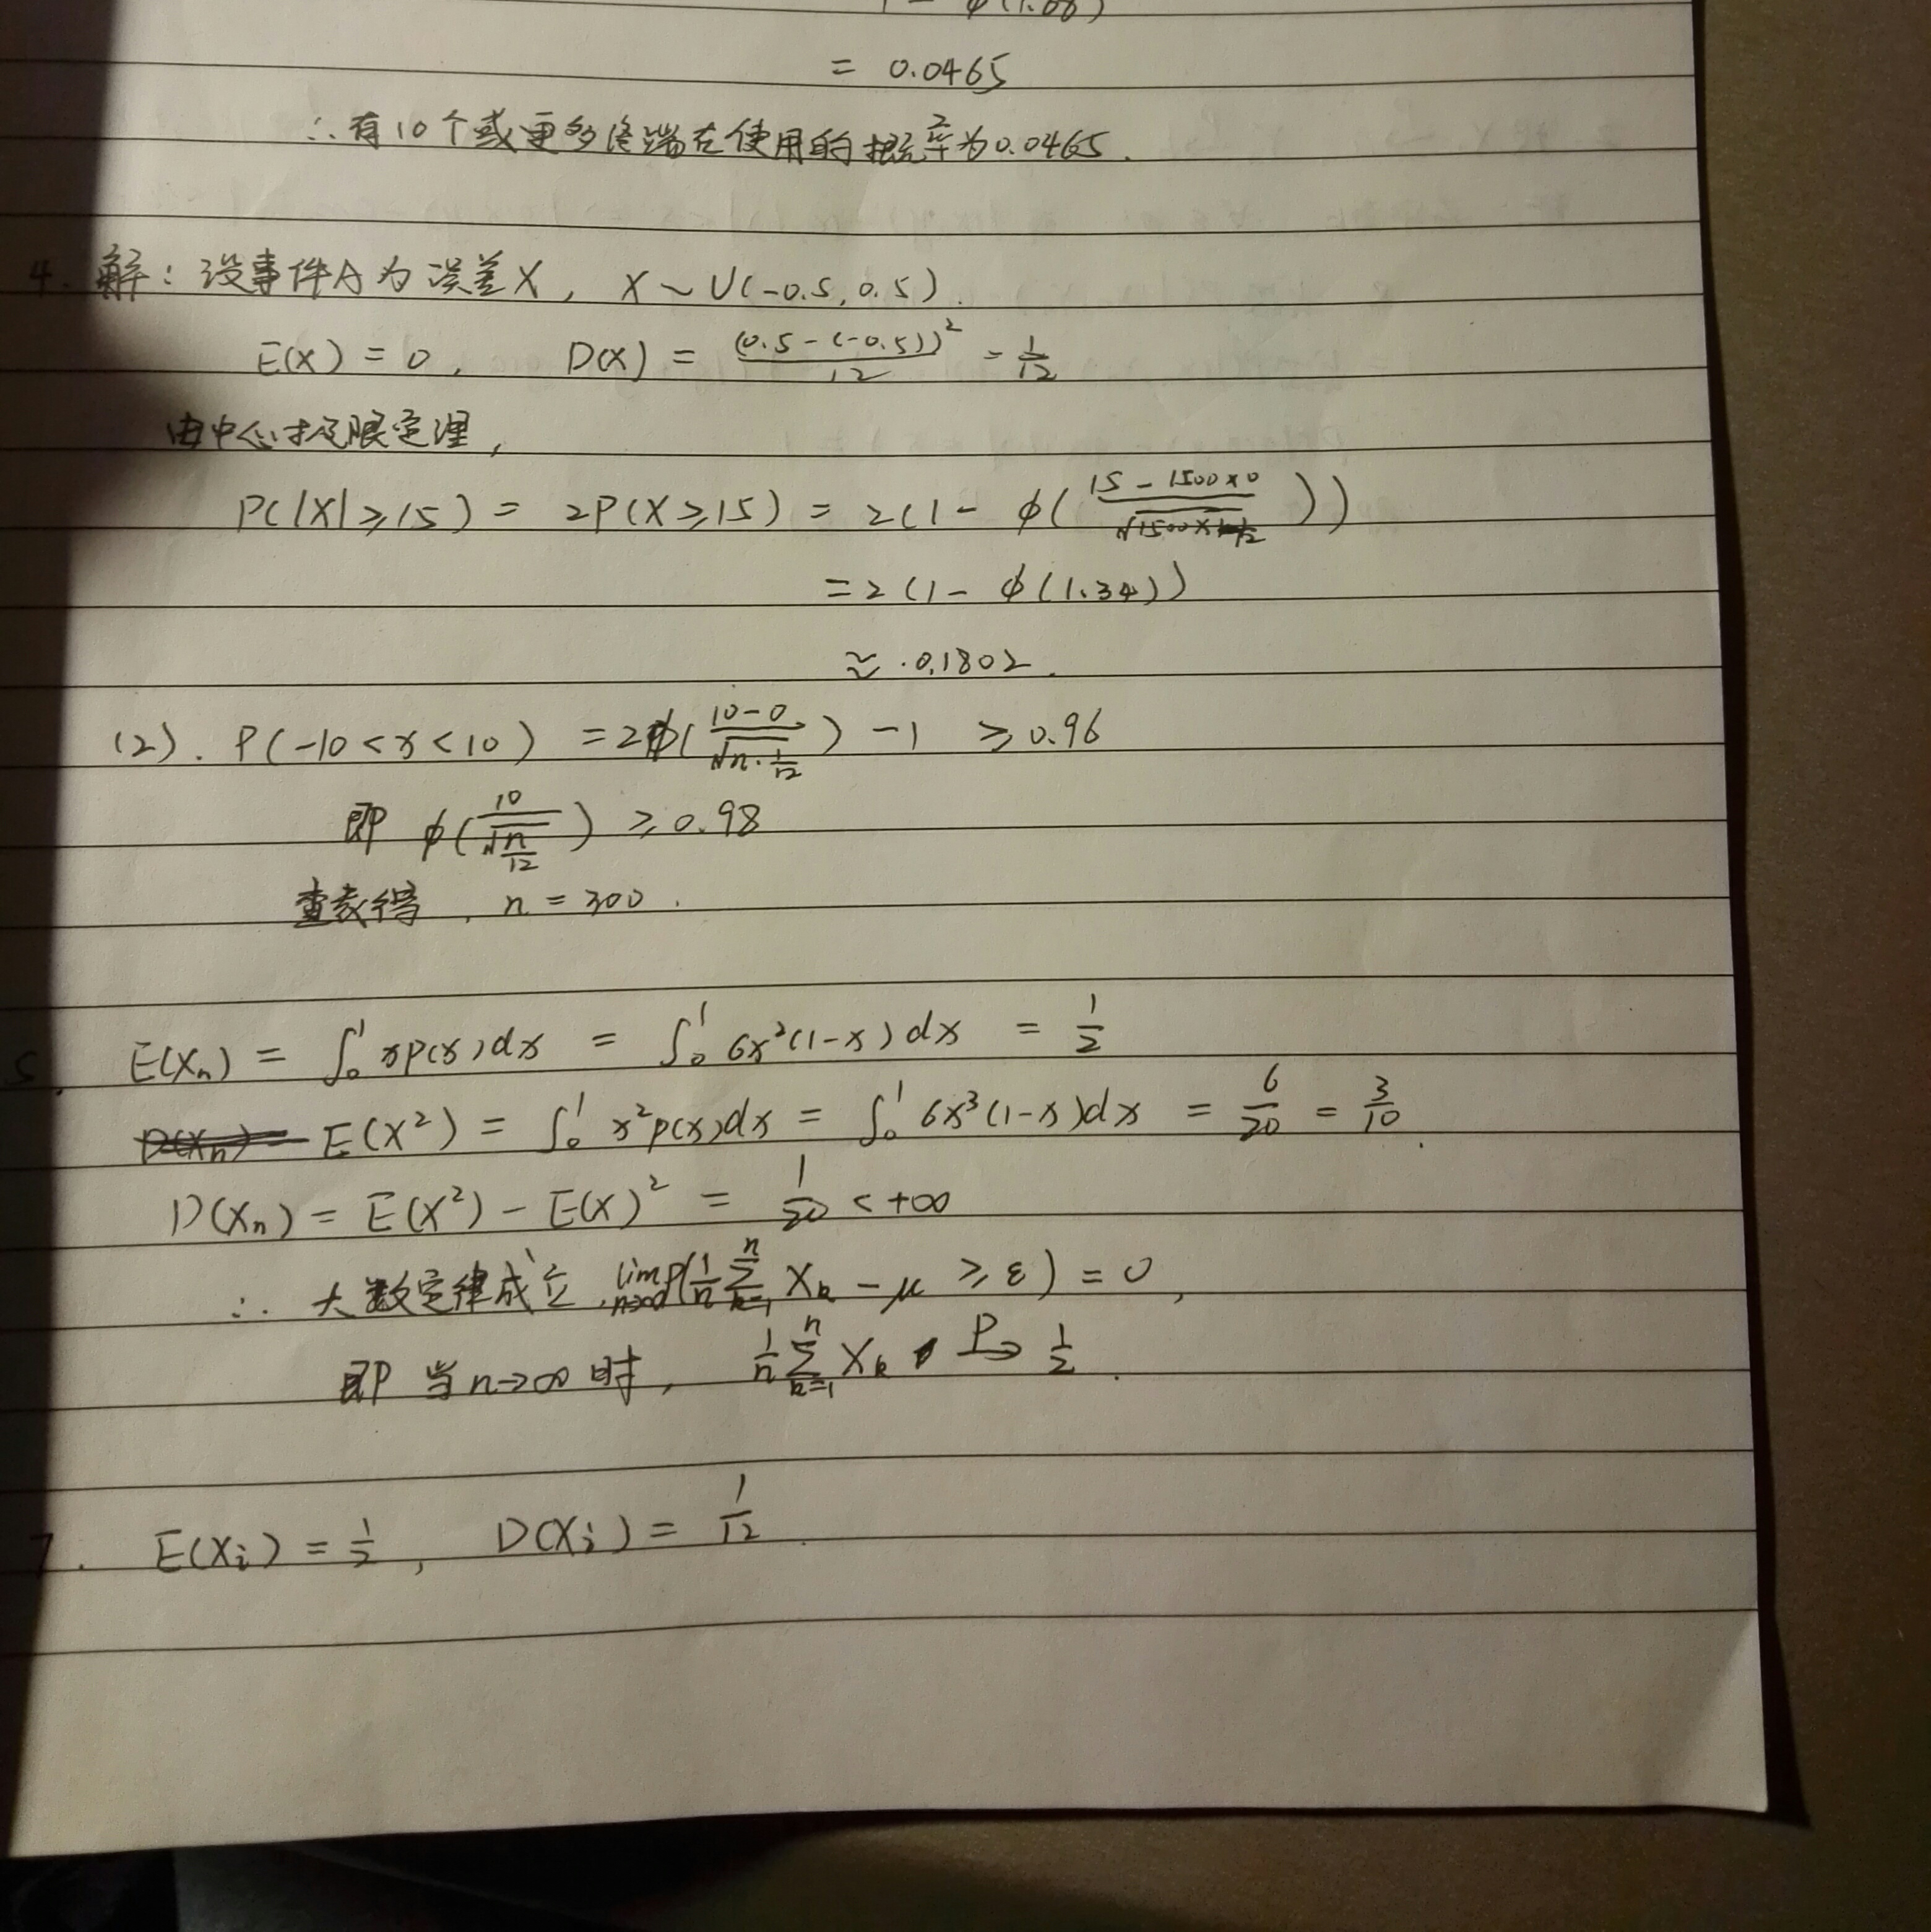 1 - φ(1.68)
= 0.0465
∴有10个或更多终端在使用的概率为0.0465.
4. 解: 设事件A为误差X, X~U(-0.5, 0.5).
E(X) = 0, D(X) = (0.5-(-0.5))²/12 = 1/12
由中心极限定理,
P(|X|≥15) = 2P(X≥15) = 2(1- φ((15-1500×0)/√(1500×1/12)))
=2(1- φ(1.34))
≈ 0.1802.
(2). P(-10<x<10) =2φ((10-0)/√(n·1/12)) -1 ≥0.96
即 φ(10/√(n/12)) ≥0.98
查表得, n = 300.
5. E(Xn) = ∫₀¹ xp(x)dx = ∫₀¹ 6x²(1-x)dx = 1/2
E(X²) = ∫₀¹ x²p(x)dx = ∫₀¹ 6x³(1-x)dx = 6/20 = 3/10.
D(Xn) = E(X²) - E(X)² = 1/20 < +∞
∴ 大数定律成立, lim n→∞ P(1/n Σ(k=1→n) Xk - μ ≥ε) = 0,
即 当n→∞时, 1/n Σ(k=1→n) Xk P→ 1/2.
7. E(Xi) = 1/2, D(Xi) = 1/12.